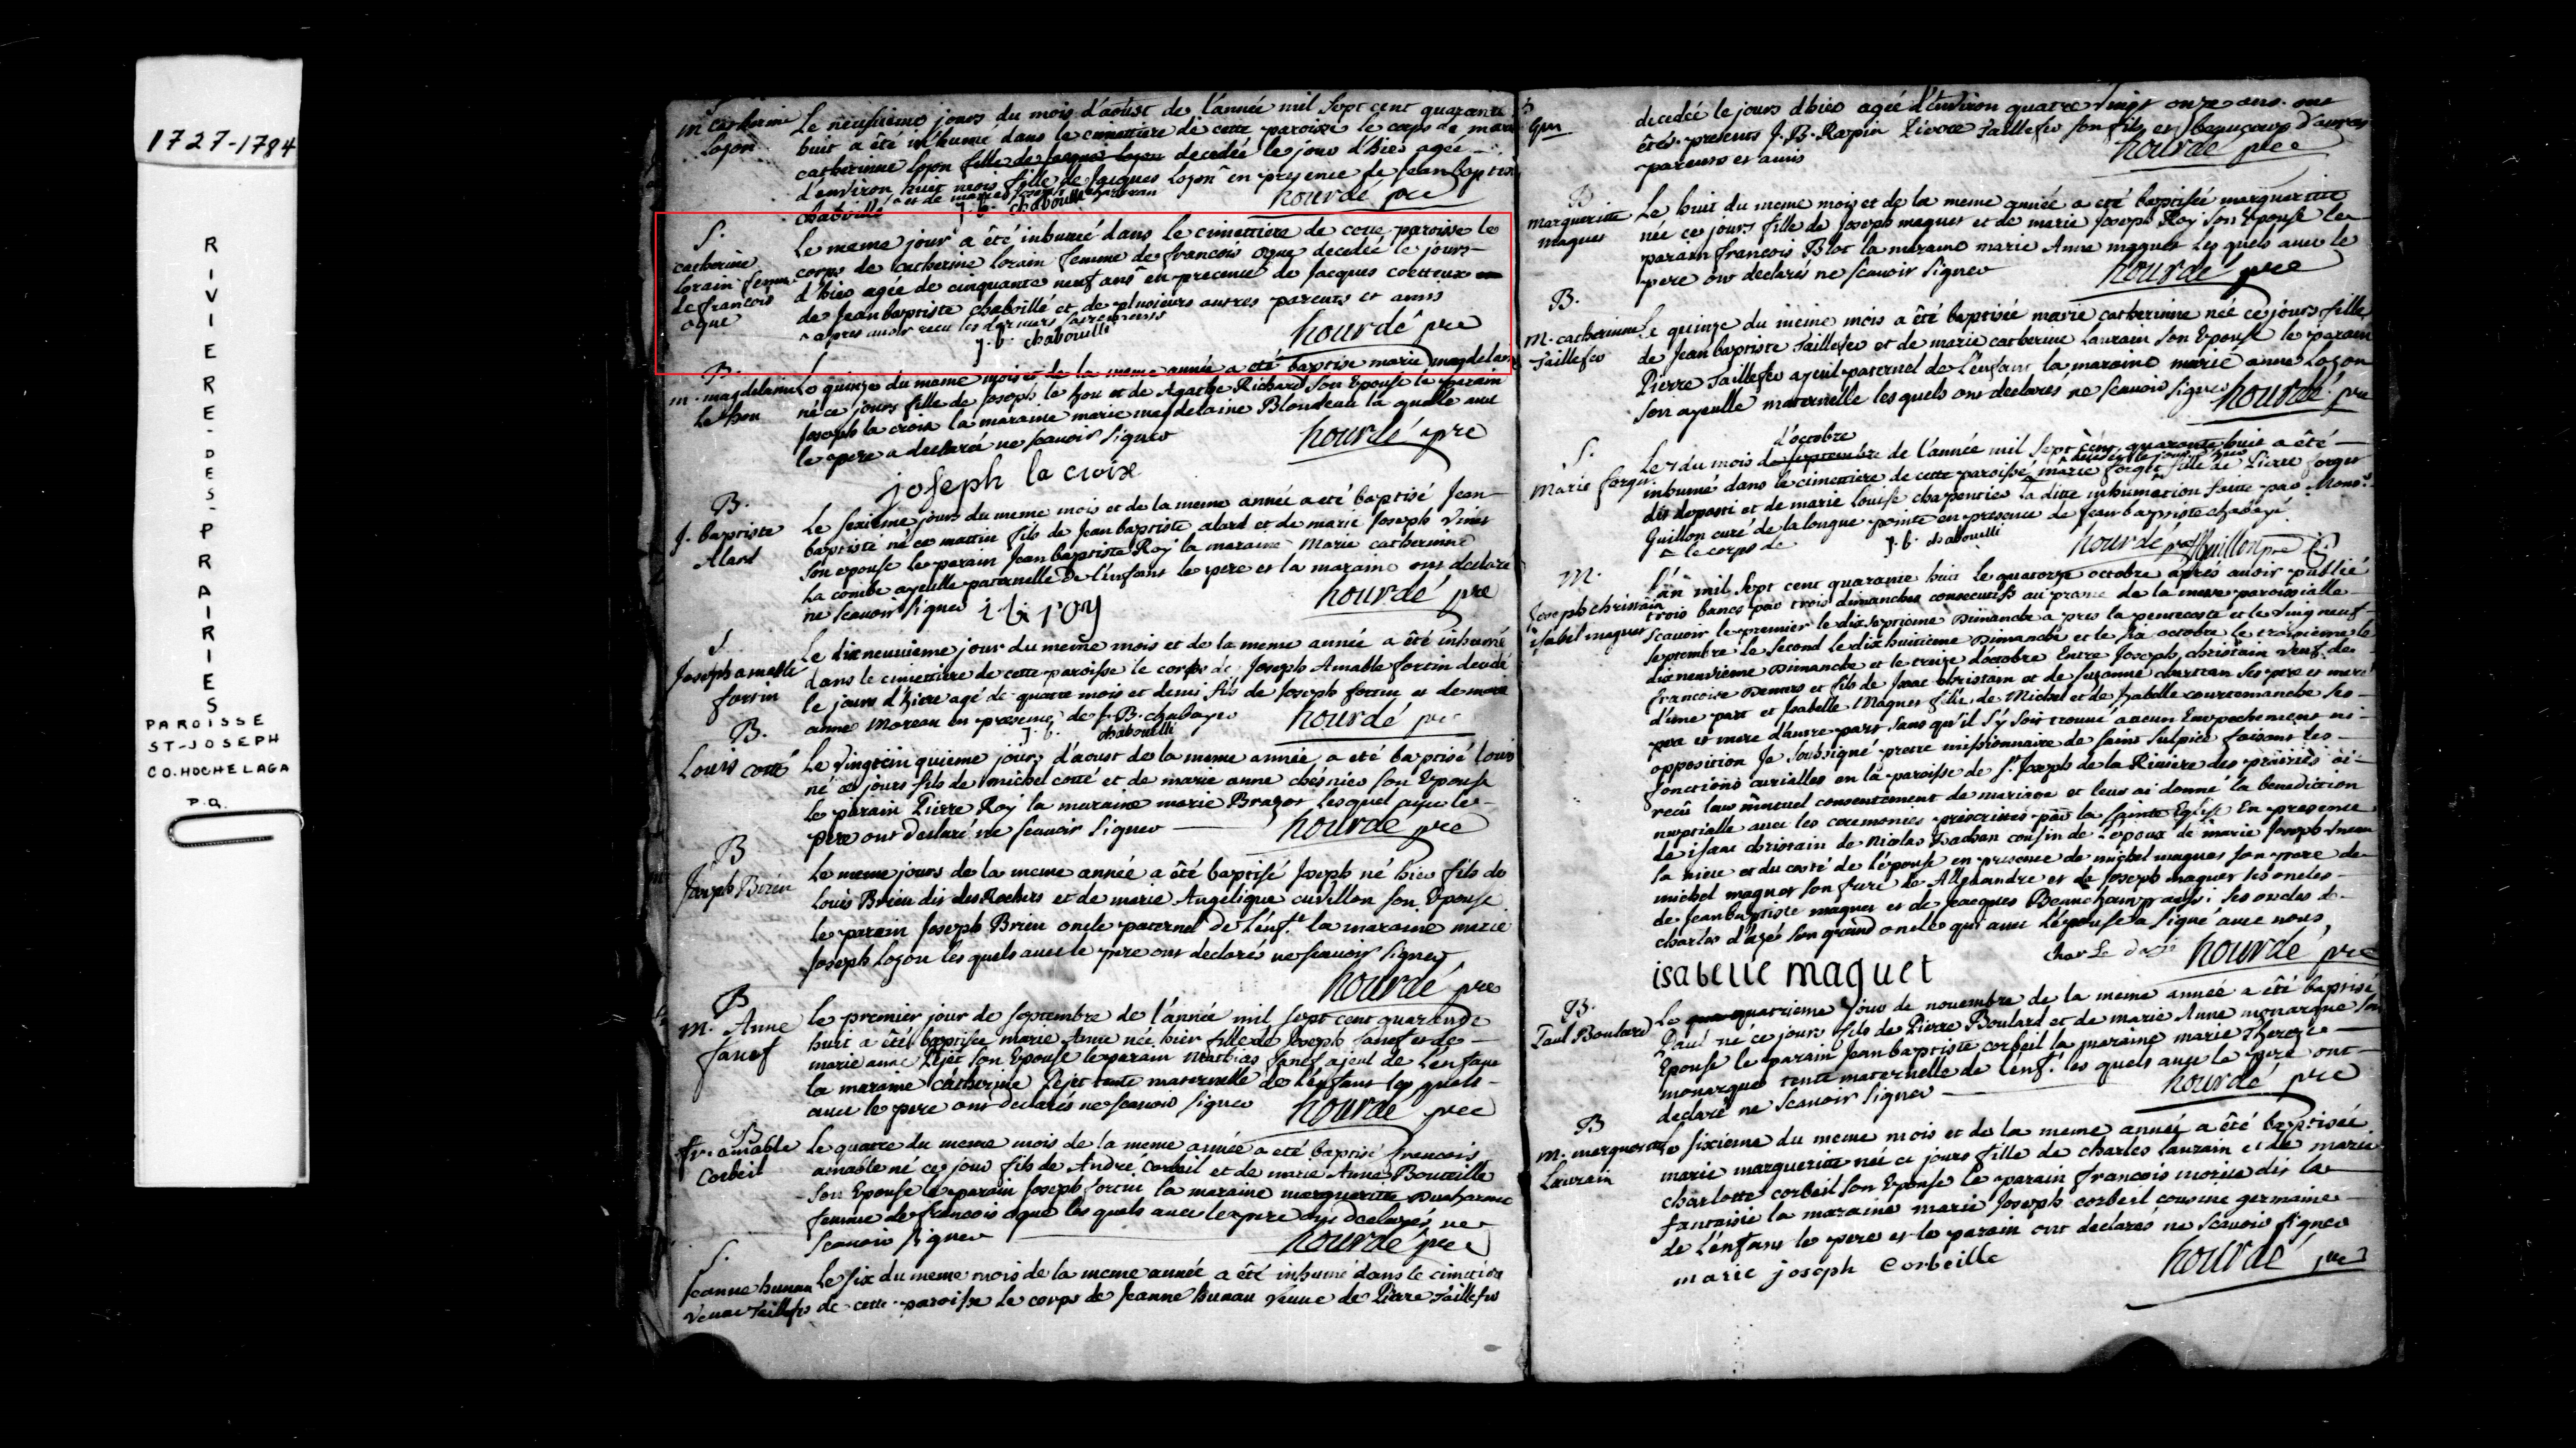 1727-1784
RIVIERE-DES-PRAIRIES
PAROISSE
ST-JOSEPH
CO. HOCHELAGA
P.Q.
m catherine
Lozon
Le neufvieme jours du mois d'aoust de l'année mil sept cent quarante
huit a été inhumé dans le cimettiere de cette paroisse le corps de marie
catherinne Lozon fille de Jacque Lozon decedée le jour d'hier agée
d'environ huit mois fille de Jacques Lozon en presence de Jean baptiste
chaboillé et de marie joseph
j. b. chabouillé hourdé pre
S.
catherine
lorain femme
de francois
ogue
Le meme jour a été inhumé dans le cimettiere de cette paroisse le
corps de catherine lorain femme de francois ogue decedée le jours
d'hier agée de cinquante neuf ans en precence de Jacques cotteux
de Jean baptiste chaboillé et de plusieurs autres parents et amis
apres avoir recu les derniers sacremens
j. b. chabouillé hourdé pre
B.
m. magdelaine
Le hou
Le quinze du meme mois et de la meme année a eté baptise marie magdelaine
né ce jours fille de Joseph le hou et de Agathe Richard son Epouse le parain
Joseph la croix la maraine marie magdelaine Blondeau la quelle avec
le pere a declaré ne scavoir signer hourdé pre
joseph la croix
B.
J. baptiste
Alard
Le sexieme jours du meme mois et de la meme année a eté baptisé Jean
baptiste né ce mattin fils de Jean baptiste alard et de marie Joseph vinet
son epouse le parain Jean baptiste Roy la maraine Marie catherinne
La combe ayeulle paternelle de l'enfant le pere et la maraine ont declaré
ne scavoir signer i b roy hourdé pre
S.
Joseph amable
fortin
Le dix neuvieme jour du meme mois et de la meme année a êté inhumé
dans le cimettiere de cette paroisse le corps de Joseph Amable fortin decedé
le jours d'hiere agé de quatre mois et demi fils de Joseph fortin et de marie
anne Moreau en presence de J. B. chaboyer
j. b. chabouillé hourdé pre
B.
Louis cotté
Le vingt cinquieme jours d'aoust de la meme année a eté baptisé louis
né ce jours fils de michel cotté et de marie anne chesnier son Epouse
le parain Pierre Roy la maraine marie Brazot lesquel avec le
pere ont declaré ne scavoir signer hourdé pre
B
Joseph Brien
Le meme jours de la meme année a êté baptisé Joseph né hier fils de
Louis Brien dit des Rochers et de marie Angelique cuvillon son Epouse
le parain Joseph Brien oncle paternel de l'enft. la maraine marie
Joseph Lozon les quels avec le pere ont declarés ne scavoir signer
hourdé pre
B
M. Anne
Janot
Le premier jour de septembre de l'année mil sept cent quarante
huit a êté baptisée marie Anne née hier fille de Joseph Janot et de
marie anne Pejet son Epouse le parain Mathias Janot ajeul de L'enfant
la maraine catherine Pejet tante maternelle de l'enfant les quels
avec le pere ont declarés ne scavoir signer hourdé pre
B
fr. amable
Corbeil
Le quatre du meme mois de la meme année a eté baptisé francois
amable né ce jour fils de André Corbeil et de marie Anne Bouteille
son Epouse le parain Joseph fortin la maraine margueritte Ducharme
femme de francois ogue les quels avec le pere ont declarés ne
scavoir signer hourdé pre
S.
Jeanne hunau
veuve taillefer
Le six du meme mois de la meme année a été inhumé dans le cimetiere
de cette paroisse le corps de Jeanne hunau veuve de Pierre taillefer
decedée le jours d'hier agée d'environ quatre vingt onze ans ont
êtés presents J. B. Rapin Pierre Taillefer son fils et beaucoup d'autres
parents et amis hourdé pre
B
margueritte
maguet
Le huit du meme mois et de la meme année a eté baptisée margueritte
née ce jours fille de Joseph maguet et de marie Joseph Roy son Epouse le
parain francois Blot la maraine marie Anne maguet les quels avec le
pere ont declarés ne scavoir signer hourdé pre
B.
M. catherinne
taillefer
Le quinze du meme mois a êté baptisée marie catherinne née ce jours fille
de Jean baptiste taillefer et de marie catherine Laurain son Epouse le parain
Pierre taillefer ayeul paternel de l'enfant la maraine marie anne Lozon
son ayeulle maternelle les quels ont declarés ne scavoir signer hourdé pre
S.
Marie forget
d'octobre
Le 7 du mois de septembre de l'année mil sept cent quarante huit a été
inhumé dans le cimettiere de cette paroisse marie forget fille de Pierre forget
dit depati et de marie louise charpentier la ditte inhumation faitte par Mons.
Guillon curé de la longue pointe en presence de Jean baptiste chaboyé
le corps de j. b. chabouillé hourdé pre Guillon pre
M.
Joseph christain
isabel maguet
L'an mil sept cent quarante huit le quatorze octobre aprés avoir publié
trois bancs par trois dimanches consecutifs au prone de la messe paroissialle
scavoir le premier le dix septieme Dimanche apres la pentecoste et le vingt neuf
septembre le second le dix huitieme Dimanche et le six octobre le troisieme le
dix neuvieme Dimanche et le treize d'octobre Entre Joseph christain veuf de
francoise Demers et fils de Isaac christain et de suzanne chartran ses pere et mere
d'une part et Isabelle Maguet fille de Michel et de Isabelle courtemanche ses
pere et mere d'autre part sans qu'il s'y soit trouvé aucun Empechement ni
opposition Je soussigné pretre missionnaire de saint sulpice faisant les
fonctions curialles en la paroisse de St. Joseph de la Riviere des prairies ai
recû leur mutuel consentement de mariage et leur ai donné la benediction
nuptialle avec les ceremonies prescrittes par la sainte Eglise En presence
de isaac christain de Nicolas cousin de l'epoux de marie Joseph
sa niece et du costé de l'épouse en presence de michel maguet son pere de
michel maguet son frere de Allexandre et de Joseph maguet ses oncles
de Jean baptiste maguet et de Jacques Beauchamp aussi ses oncles de
charles d'azé son grand oncle qui avec L'épouse a signé avec nous
isabelle maguet hourdé pre
B.
Paul Boulard
Le quatrieme jour de novembre de la meme année a êté baptisé
Paul né ce jours fils de Pierre Boulard et de marie Anne monarque son
Epouse le parain Jean baptiste corbeil la maraine marie Thereze
monarque tente maternelle de l'enft. les quels avec le pere ont
declaré ne scavoir signer hourdé pre
B
m. margueritte
Laurain
Le sixieme du meme mois et de la meme année a êté baptisée
marie margueritte née ce jours fille de charles laurain et de marie
charlotte corbeil son Epouse le parain francois morin dit la
fantaisie la maraine marie Joseph corbeil cousine germaine
de l'enfant le pere et le parain ont declarés ne scavoir signer
marie joseph Corbeille hourdé pre